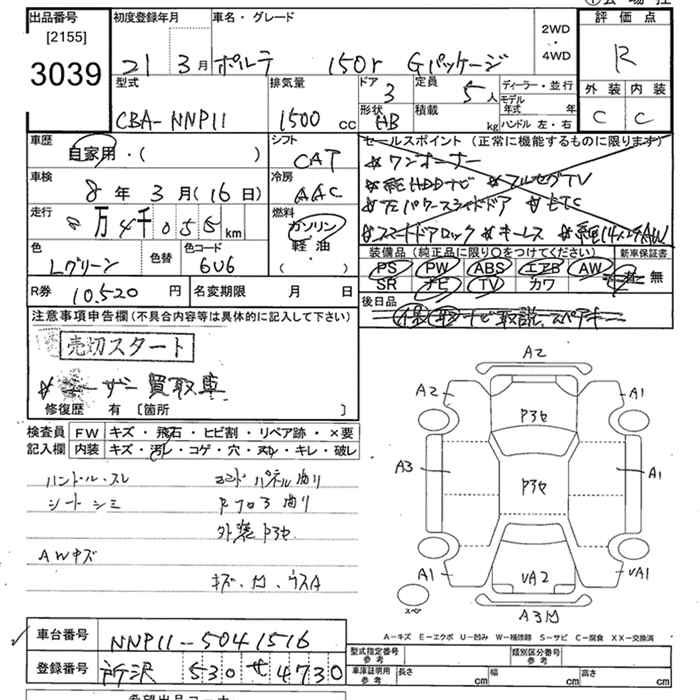 出品番号 初度登録年月 車名・グレード 2WD・4WD 評価点
[2155]
3039
21 3月 ポルテ 150r Gパッケージ R
型式 排気量 ドア 定員 ディーラー・並行 外装 内装
3 5人 モデル年式 年
CBA-NNP11 1500cc 形状 HB 積載 kg ハンドル 左・右 C C
車歴 シフト セールスポイント (正常に機能するものに限ります)
自家用・( ) CAT ☆ワンオーナー
車検 冷房 ☆純正HDDナビ ☆フルセグTV
8年 3月 (16日) AAC ☆左パワースライドドア ☆ETC
走行 燃料 ☆スマートドアロック ☆キーレス
2万4千055km ガソリン
軽油
・( )
色 色替 色コード 装備品 (純正品に限り○をつけてください) 新車保証書
Lグリーン 6U6 PS PW ABS エアB AW 無
SR ナビ TV カワ
R券 10,520円 名変期限 月 日 後日品
取説、スペアキー
注意事項申告欄(不具合内容等は具体的に記入して下さい)
売切スタート
☆ユーザー買取車
修復歴 有 [箇所 ]
検査員 FW キズ・飛石・ヒビ割・リペア跡・×要
記入欄 内装 キズ・汚レ・コゲ・穴・ヌレ・キレ・破レ
ハンドル・スレ
シートシミ
外装P3セ
AWキズ
A2
A2 P3セ A1
A3 P3セ A1
A1 UA2 UA1
スペ A3凹
A-キズ E-エクボ U-凹み W-補修跡 S-サビ C-腐食 XX-交換済
車台番号 NNP11-5041516 型式指定番号 参考 類別区分番号 参考
登録番号 所沢 530 せ 4730 車庫証明用 参考 長さ cm 幅 cm 高さ cm